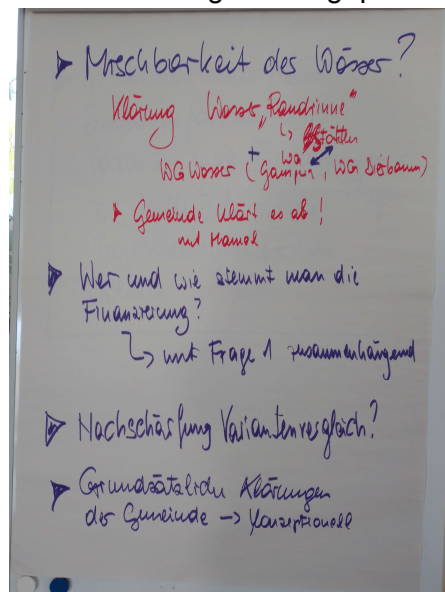 ▶ Mischbarkeit des Wässer?
Klärung Wasser „Randrinne“
↳ stätten
+ WG
WG Wasser ( , WG )
▶ Gemeinde klärt es ab!
mit Hamel
▶ Wer und wie stemmt man die
Finanzierung?
↳ mit Frage 1 zusammenhängend
▶ Nachschärfung Variantenvergleich?
▶ Grundsätzliche Klärungen
der Gemeinde → konzeptionell